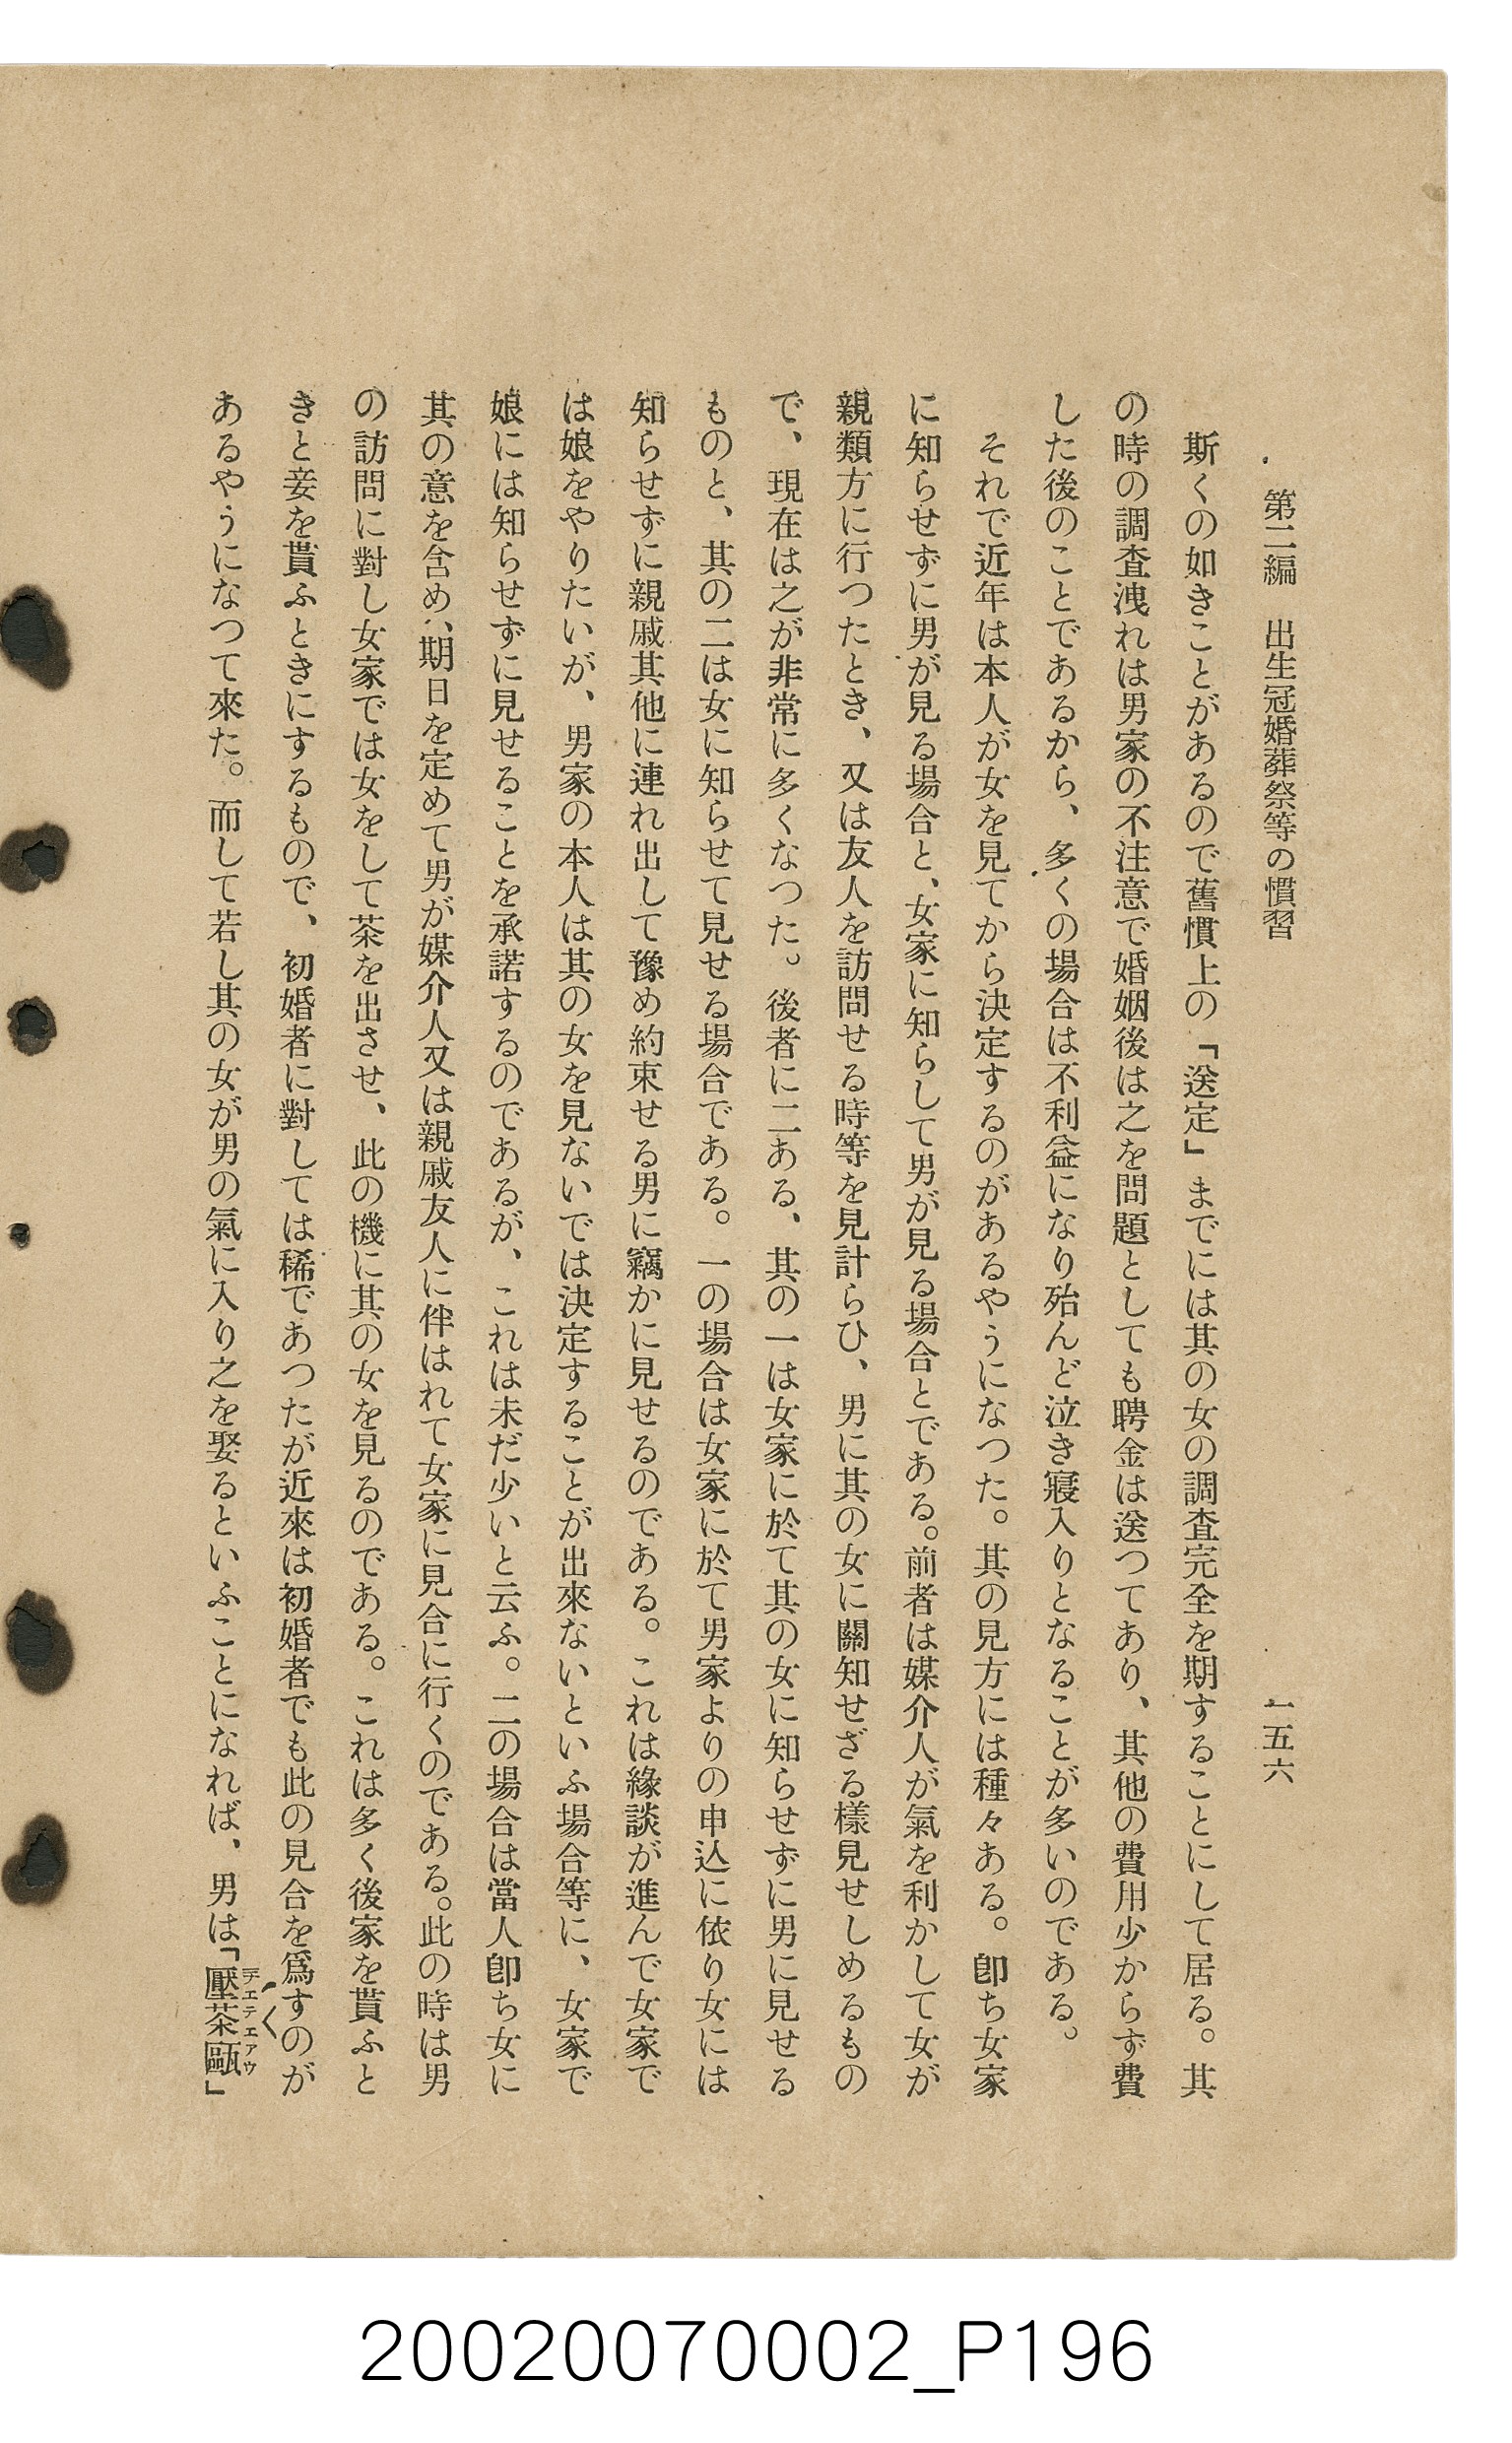 第二編　出生冠婚葬祭等の慣習
一五六
斯くの如きことがあるので舊慣上の「送定」までには其の女の調査完全を期することにして居る。其
の時の調査洩れは男家の不注意で婚姻後は之を問題としても聘金は送つてあり、其他の費用少からず費
した後のことであるから、多くの場合は不利益になり殆んど泣き寢入りとなることが多いのである。
それで近年は本人が女を見てから決定するのがあるやうになつた。其の見方には種々ある。卽ち女家
に知らせずに男が見る場合と、女家に知らして男が見る場合とである。前者は媒介人が氣を利かして女が
親類方に行つたとき、又は友人を訪問せる時等を見計らひ、男に其の女に關知せざる樣見せしめるもの
で、現在は之が非常に多くなつた。後者に二ある、其の一は女家に於て其の女に知らせずに男に見せる
ものと、其の二は女に知らせて見せる場合である。一の場合は女家に於て男家よりの申込に依り女には
知らせずに親戚其他に連れ出して豫め約束せる男に竊かに見せるのである。これは緣談が進んで女家で
は娘をやりたいが、男家の本人は其の女を見ないでは決定することが出來ないといふ場合等に、女家で
娘には知らせずに見せることを承諾するのであるが、これは未だ少いと云ふ。二の場合は當人卽ち女に
其の意を含め、期日を定めて男が媒介人又は親戚友人に伴はれて女家に見合に行くのである。此の時は男
の訪問に對し女家では女をして茶を出させ、此の機に其の女を見るのである。これは多く後家を貰ふと
きと妾を貰ふときにするもので、初婚者に對しては稀であつたが近來は初婚者でも此の見合を爲すのが
あるやうになつて來た。而して若し其の女が男の氣に入り之を娶るといふことになれば、男は「壓茶甌」
20020070002_P196